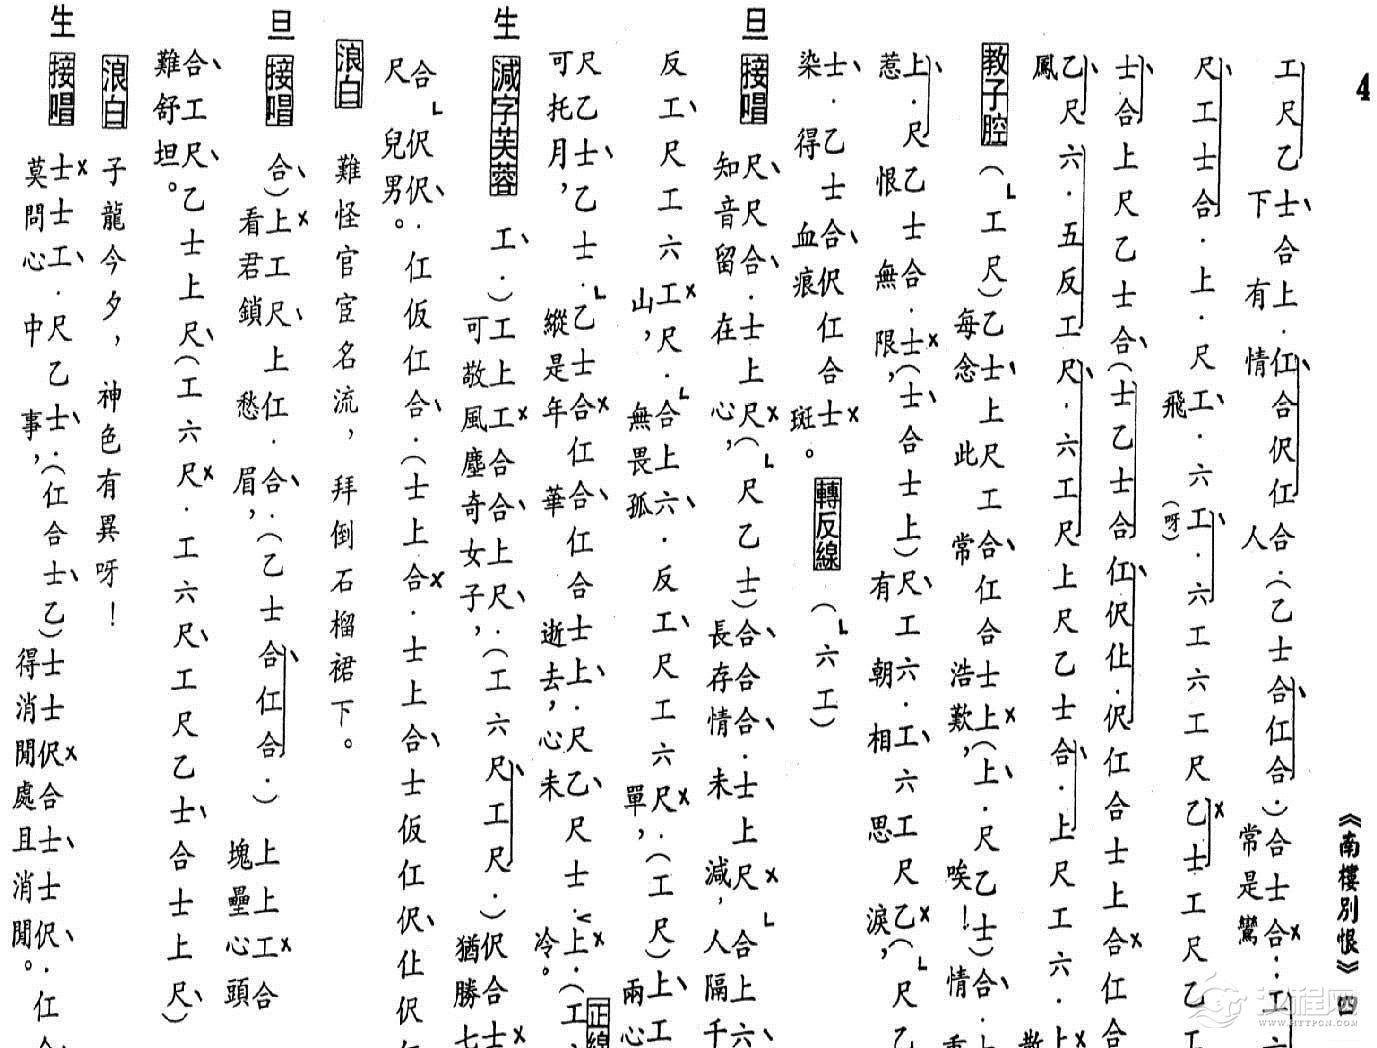 4
《南樓別恨》 四
工尺乙士合上.仜合伬仜合.(乙士合仜合.)合士合.工六
下有情人常是鸞
尺工士合.上.尺工.六工.六工六工尺乙士工尺乙工
飛(呀)
士合上尺乙士合(士乙士合仜伬仩.伬仜合士上合仜合
乙尺六.五反工尺.六工尺上尺乙士合.上尺工六.上
鳳
教子腔 (工尺)乙士上尺工合仜合士上(上.尺乙士)合.
每念此常浩歎,唉!情
上.尺乙士合.士(士合士上)尺工六.工六工尺乙(尺乙
惹恨無限,有朝相思淚,
士.乙士合伬仜合士 轉反線 (六工)
染得血痕斑。
旦 接唱 尺尺合.士上尺(尺乙士)合合合.士上尺合上六
知音留在心,長存情未減,人隔千
反工尺工六工尺.合上六.反工尺工六尺.(工尺)上工
山,無畏孤單,兩心
尺乙士乙士.乙士合仜合仜合士上.尺乙尺士.上.(工 正線
可托月,縱是年華逝去,心未冷。
生 減字芙蓉 工.)工上工合合上尺.(工六尺工尺.)伬合士
可敬風塵奇女子,猶勝七
合伬伬.仜仮仜合.(士上合.士上合士仮仜伬仩伬
尺兒男。
浪白 難怪官宦名流,拜倒石榴裙下。
旦 接唱 合)上工尺上仜.合.(乙士合仜合.)上上工合
看君鎖愁眉,塊壘心頭
合工尺乙士上尺(工六尺.工六尺工尺乙士合士上尺)
難舒坦。
浪白 子龍今夕,神色有異呀!
生 接唱 士士工.尺乙士.(仜合士乙)士士伬合士士伬.仜合
莫問心中事,得消閒處且消閒。
汉程网
WWW.HTTPCN.COM